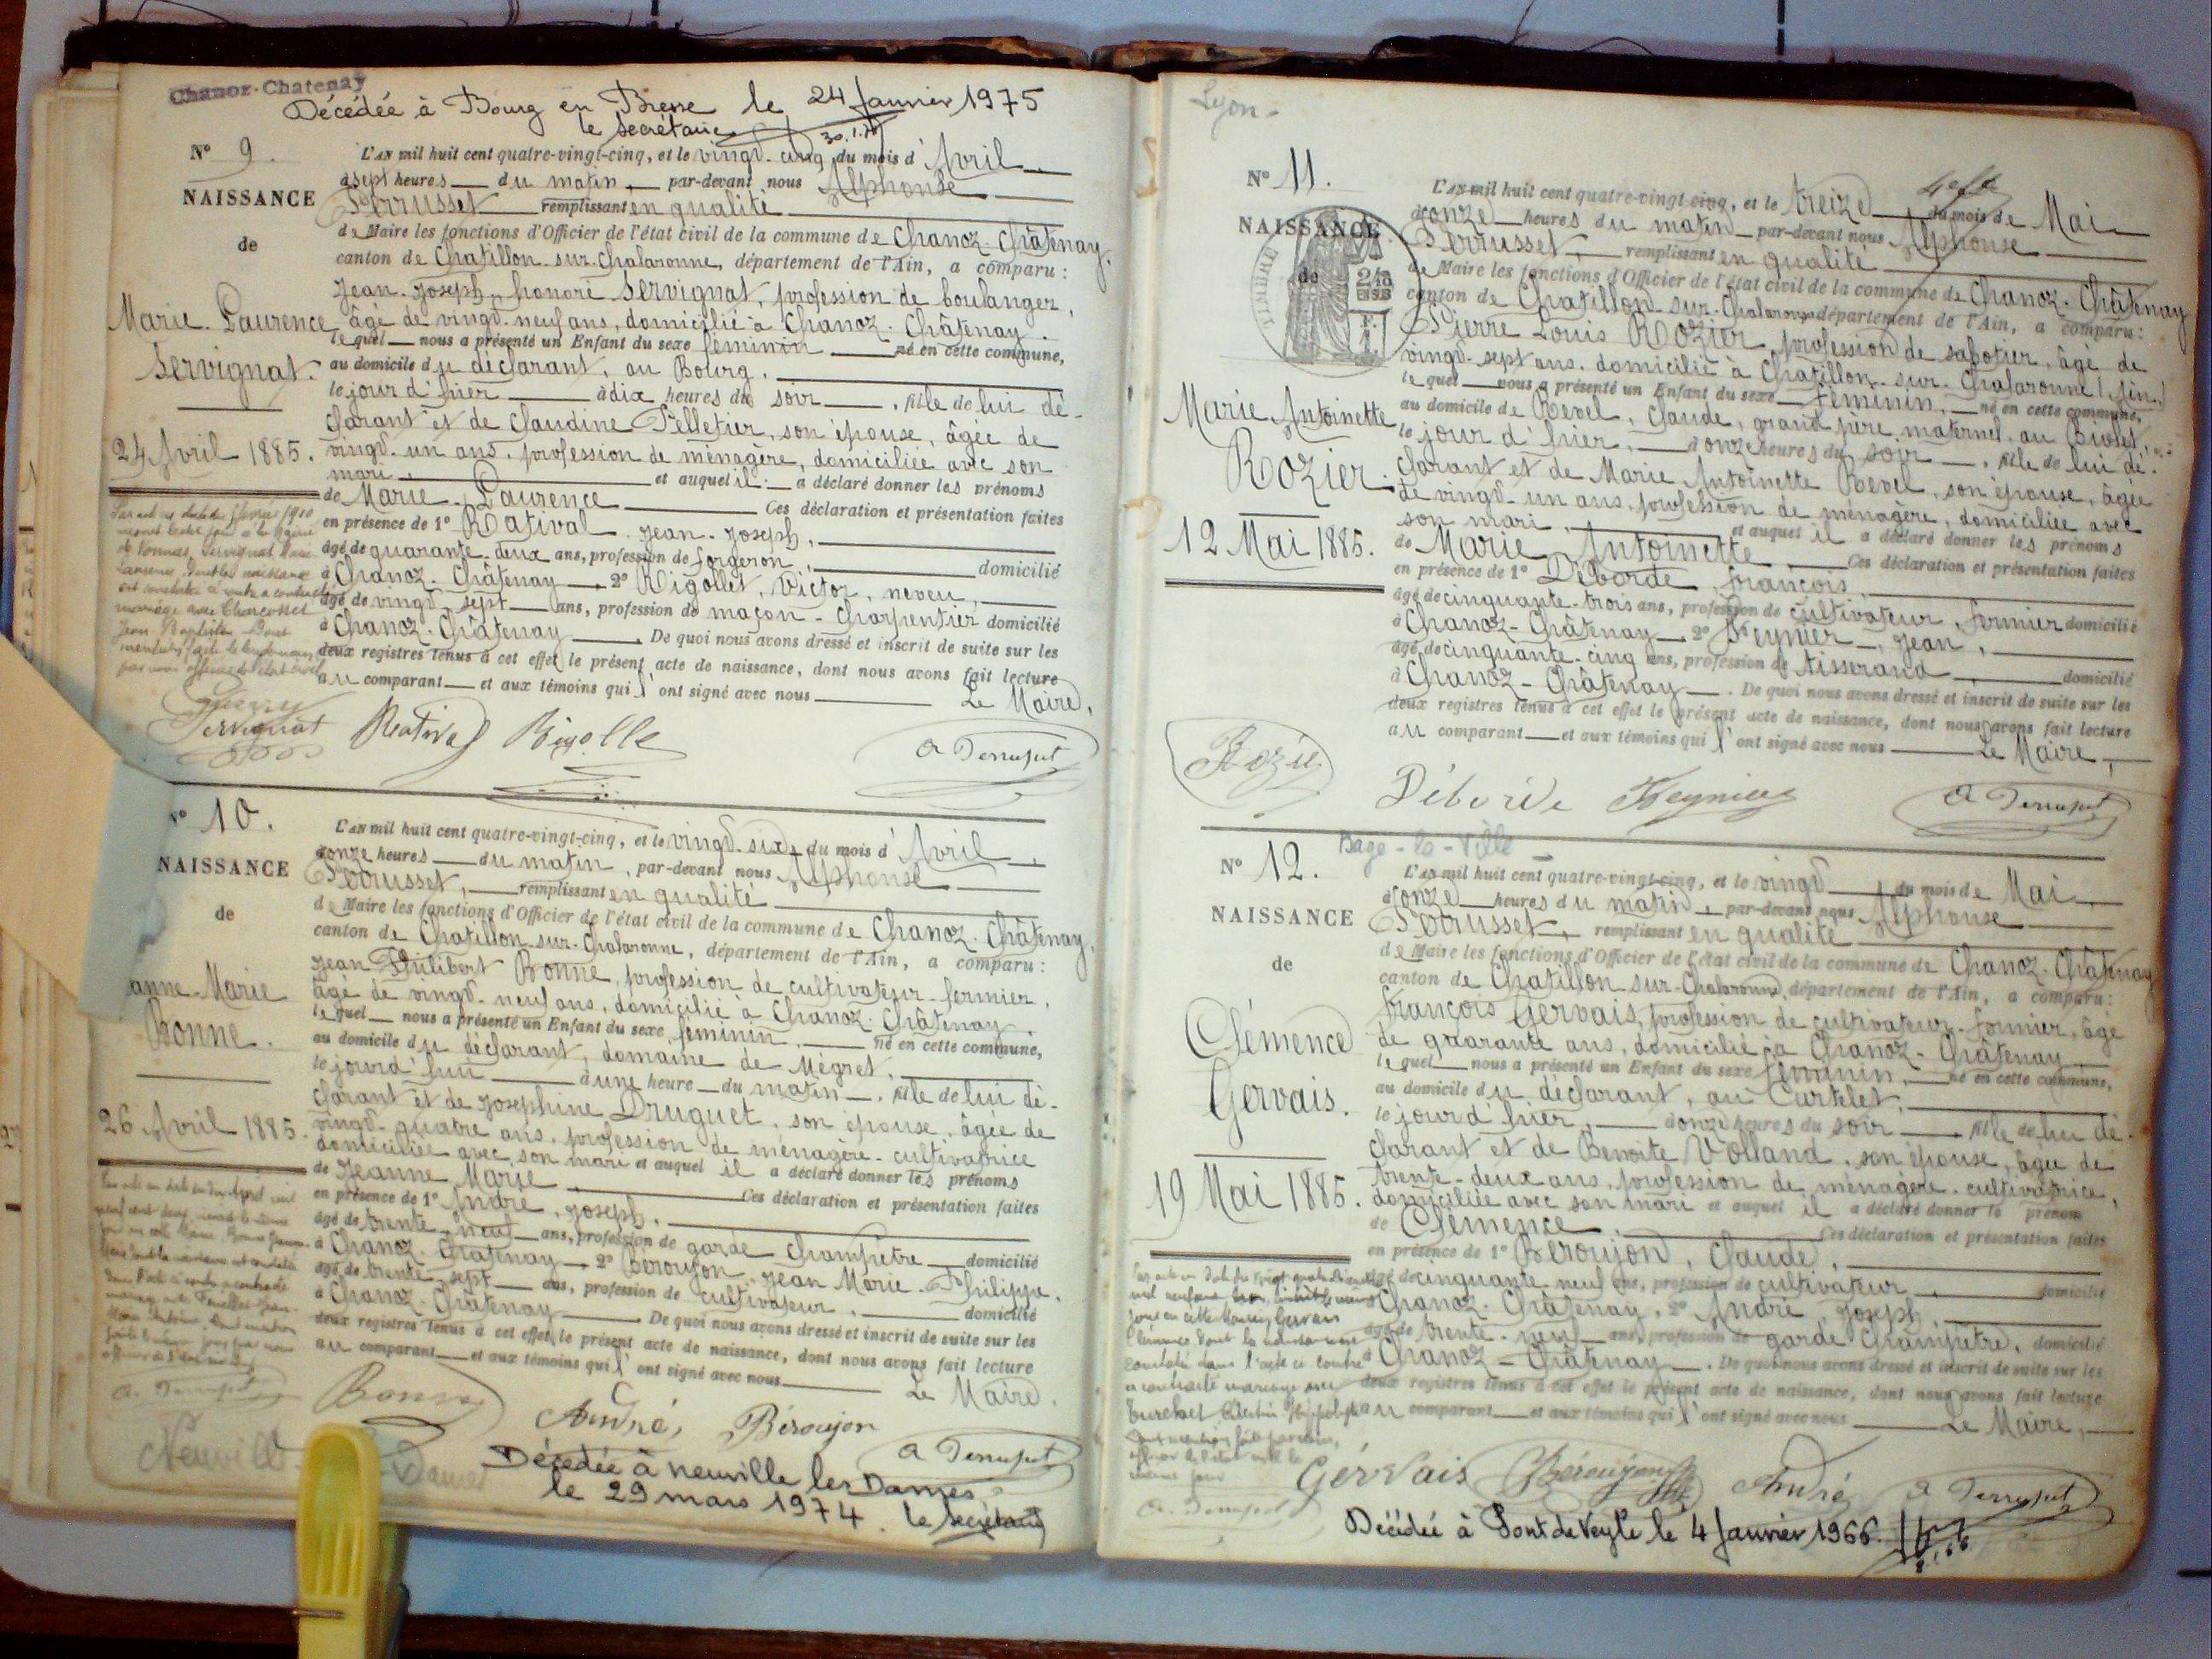 Chanoz-Chatenay
Décédée à Bourg en Bresse le 24 Janvier 1975
le secrétaire
N° 9.
NAISSANCE
de
Marie-Laurence
Servignat.
24 Avril 1885.
L'An mil huit cent quatre-vingt-cinq, et le vingt-cinq, du mois d'Avril
à sept heures du matin, par-devant nous Alphonse
Perrusset remplissant en qualité
de Maire les fonctions d'Officier de l'état civil de la commune de Chanoz-Châtenay,
canton de Chatillon-sur-Chalaronne, département de l'Ain, a comparu :
Jean-Joseph-honoré Servignat, profession de boulanger,
âgé de vingt-neuf ans, domicilié à Chanoz-Châtenay.
lequel nous a présenté un Enfant du sexe féminin né en cette commune,
au domicile du déclarant, au Bourg.
le jour d'hier à dix heures du soir, fille de lui dé-
clarant et de Claudine Pelletier, son épouse, âgée de
vingt-un ans, profession de ménagère, domiciliée avec son
mari, et auquel il a déclaré donner les prénoms
de Marie-Laurence Ces déclaration et présentation faites
en présence de 1° Ratival Jean-Joseph,
âgé de quarante-deux ans, profession de forgeron, domicilié
à Chanoz-Châtenay 2° Rigollet, Victor, neveu,
âgé de vingt-sept ans, profession de maçon-charpentier domicilié
à Chanoz-Châtenay. De quoi nous avons dressé et inscrit de suite sur les
deux registres tenus à cet effet le présent acte de naissance, dont nous avons fait lecture
au comparant et aux témoins qui l'ont signé avec nous Le Maire,
Servignat Rativa Rigolle A Perrusset
N° 10.
NAISSANCE
de
anne-Marie
Bonne.
26 Avril 1885.
L'An mil huit cent quatre-vingt-cinq, et le vingt-six, du mois d'Avril
à onze heures du matin, par-devant nous Alphonse
Perrusset, remplissant en qualité
de Maire les fonctions d'Officier de l'état civil de la commune de Chanoz-Châtenay,
canton de Chatillon-sur-Chalaronne, département de l'Ain, a comparu :
Jean Philibert Bonne, profession de cultivateur-fermier,
âgé de vingt-neuf ans, domicilié à Chanoz-Châtenay.
lequel nous a présenté un Enfant du sexe féminin, né en cette commune,
au domicile du déclarant, domaine de Mégret,
le jour d'hui à une heure du matin, fille de lui dé-
clarant et de Josephine Druguet, son épouse, âgée de
vingt-quatre ans, profession de ménagère-cultivatrice
domiciliée avec son mari et auquel il a déclaré donner les prénoms
de Jeanne Marie Ces déclaration et présentation faites
en présence de 1° André, Joseph,
âgé de trente-neuf ans, profession de garde champêtre domicilié
à Chanoz-Châtenay 2° Béroujon Jean Marie-Philippe,
âgé de trente-sept ans, profession de cultivateur, domicilié
à Chanoz-Châtenay. De quoi nous avons dressé et inscrit de suite sur les
deux registres tenus à cet effet le présent acte de naissance, dont nous avons fait lecture
au comparant et aux témoins qui l'ont signé avec nous Le Maire.
Bonne André, Béroujon A Perrusset
Décédée à Neuville les Dames
le 29 mars 1974. le secrétaire
Lyon-
N° 11.
NAISSANCE
de
Marie Antoinette
Rozier.
12 Mai 1885.
L'An mil huit cent quatre-vingt-cinq, et le treize du mois de Mai
à onze heures du matin par-devant nous Alphonse
Perrusset, remplissant en qualité
de Maire les fonctions d'Officier de l'état civil de la commune de Chanoz-Châtenay
canton de Chatillon-sur-Chalaronne, département de l'Ain, a comparu :
Pierre Louis Rozier, profession de sabotier, âgé de
vingt-sept ans, domicilié à Chatillon-sur-Chalaronne (Ain)
lequel nous a présenté un Enfant du sexe féminin, né en cette commune,
au domicile de Revel, Claude, grand père maternel, au Biolet,
le jour d'hier, à onze heures du soir, fille de lui dé-
clarant et de Marie Antoinette Revel, son épouse, âgée
de vingt-un ans, profession de ménagère, domiciliée avec
son mari, et auquel il a déclaré donner les prénoms
de Marie Antoinette Ces déclaration et présentation faites
en présence de 1° Déborde, françois,
âgé de cinquante-trois ans, profession de cultivateur, fermier domicilié
à Chanoz-Châtenay 2° Peynier, Jean,
âgé de cinquante-cinq ans, profession de tisserand domicilié
à Chanoz-Châtenay. De quoi nous avons dressé et inscrit de suite sur les
deux registres tenus à cet effet le présent acte de naissance, dont nous avons fait lecture
au comparant et aux témoins qui l'ont signé avec nous Le Maire,
Rozié Déborde Peynier A Perrusset
Bagé-la-Ville
N° 12.
NAISSANCE
de
Clémence
Gervais.
19 Mai 1885.
L'An mil huit cent quatre-vingt-cinq, et le vingt du mois de Mai
à onze heures du matin, par-devant nous Alphonse
Perrusset, remplissant en qualité
de Maire les fonctions d'Officier de l'état civil de la commune de Chanoz-Châtenay
canton de Chatillon-sur-Chalaronne, département de l'Ain, a comparu :
françois Gervais, profession de cultivateur-fermier, âgé
de quarante ans, domicilié à Chanoz-Châtenay
lequel nous a présenté un Enfant du sexe féminin, né en cette commune,
au domicile du déclarant, au Curtelet,
le jour d'hier, à onze heures du soir fille de lui dé-
clarant et de Benoite Volland, son épouse, âgée de
trente-deux ans, profession de ménagère-cultivatrice,
domiciliée avec son mari et auquel il a déclaré donner le prénom
de Clémence. Ces déclaration et présentation faites
en présence de 1° Béroujon, Claude,
âgé de cinquante neuf ans, profession de cultivateur domicilié
à Chanoz-Châtenay, 2° André, Joseph,
âgé de trente-neuf ans, profession de garde champêtre, domicilié
à Chanoz-Châtenay. De quoi nous avons dressé et inscrit de suite sur les
deux registres tenus à cet effet le présent acte de naissance, dont nous avons fait lecture
au comparant et aux témoins qui l'ont signé avec nous Le Maire,
Gervais Béroujon André A Perrusset
Décédée à Pont de Veyle le 4 Janvier 1966.